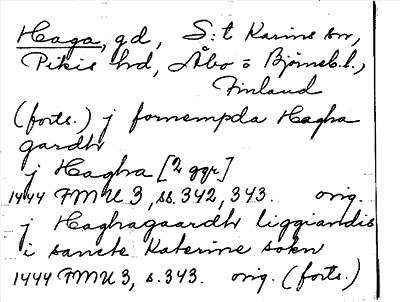 Haga, gd, S:t Karins sn,
Pikis hd, Åbo = Björneb. l.,
Finland
(forts.) j fornempda Hagha
gardh
j Hagha [2 ggr]
1444 FMU 3, ss. 342, 343. orig.
j Haghagaardh liggiandis
i sancte Katerine sokn
1444 FMU 3, s. 343. orig. (forts.)